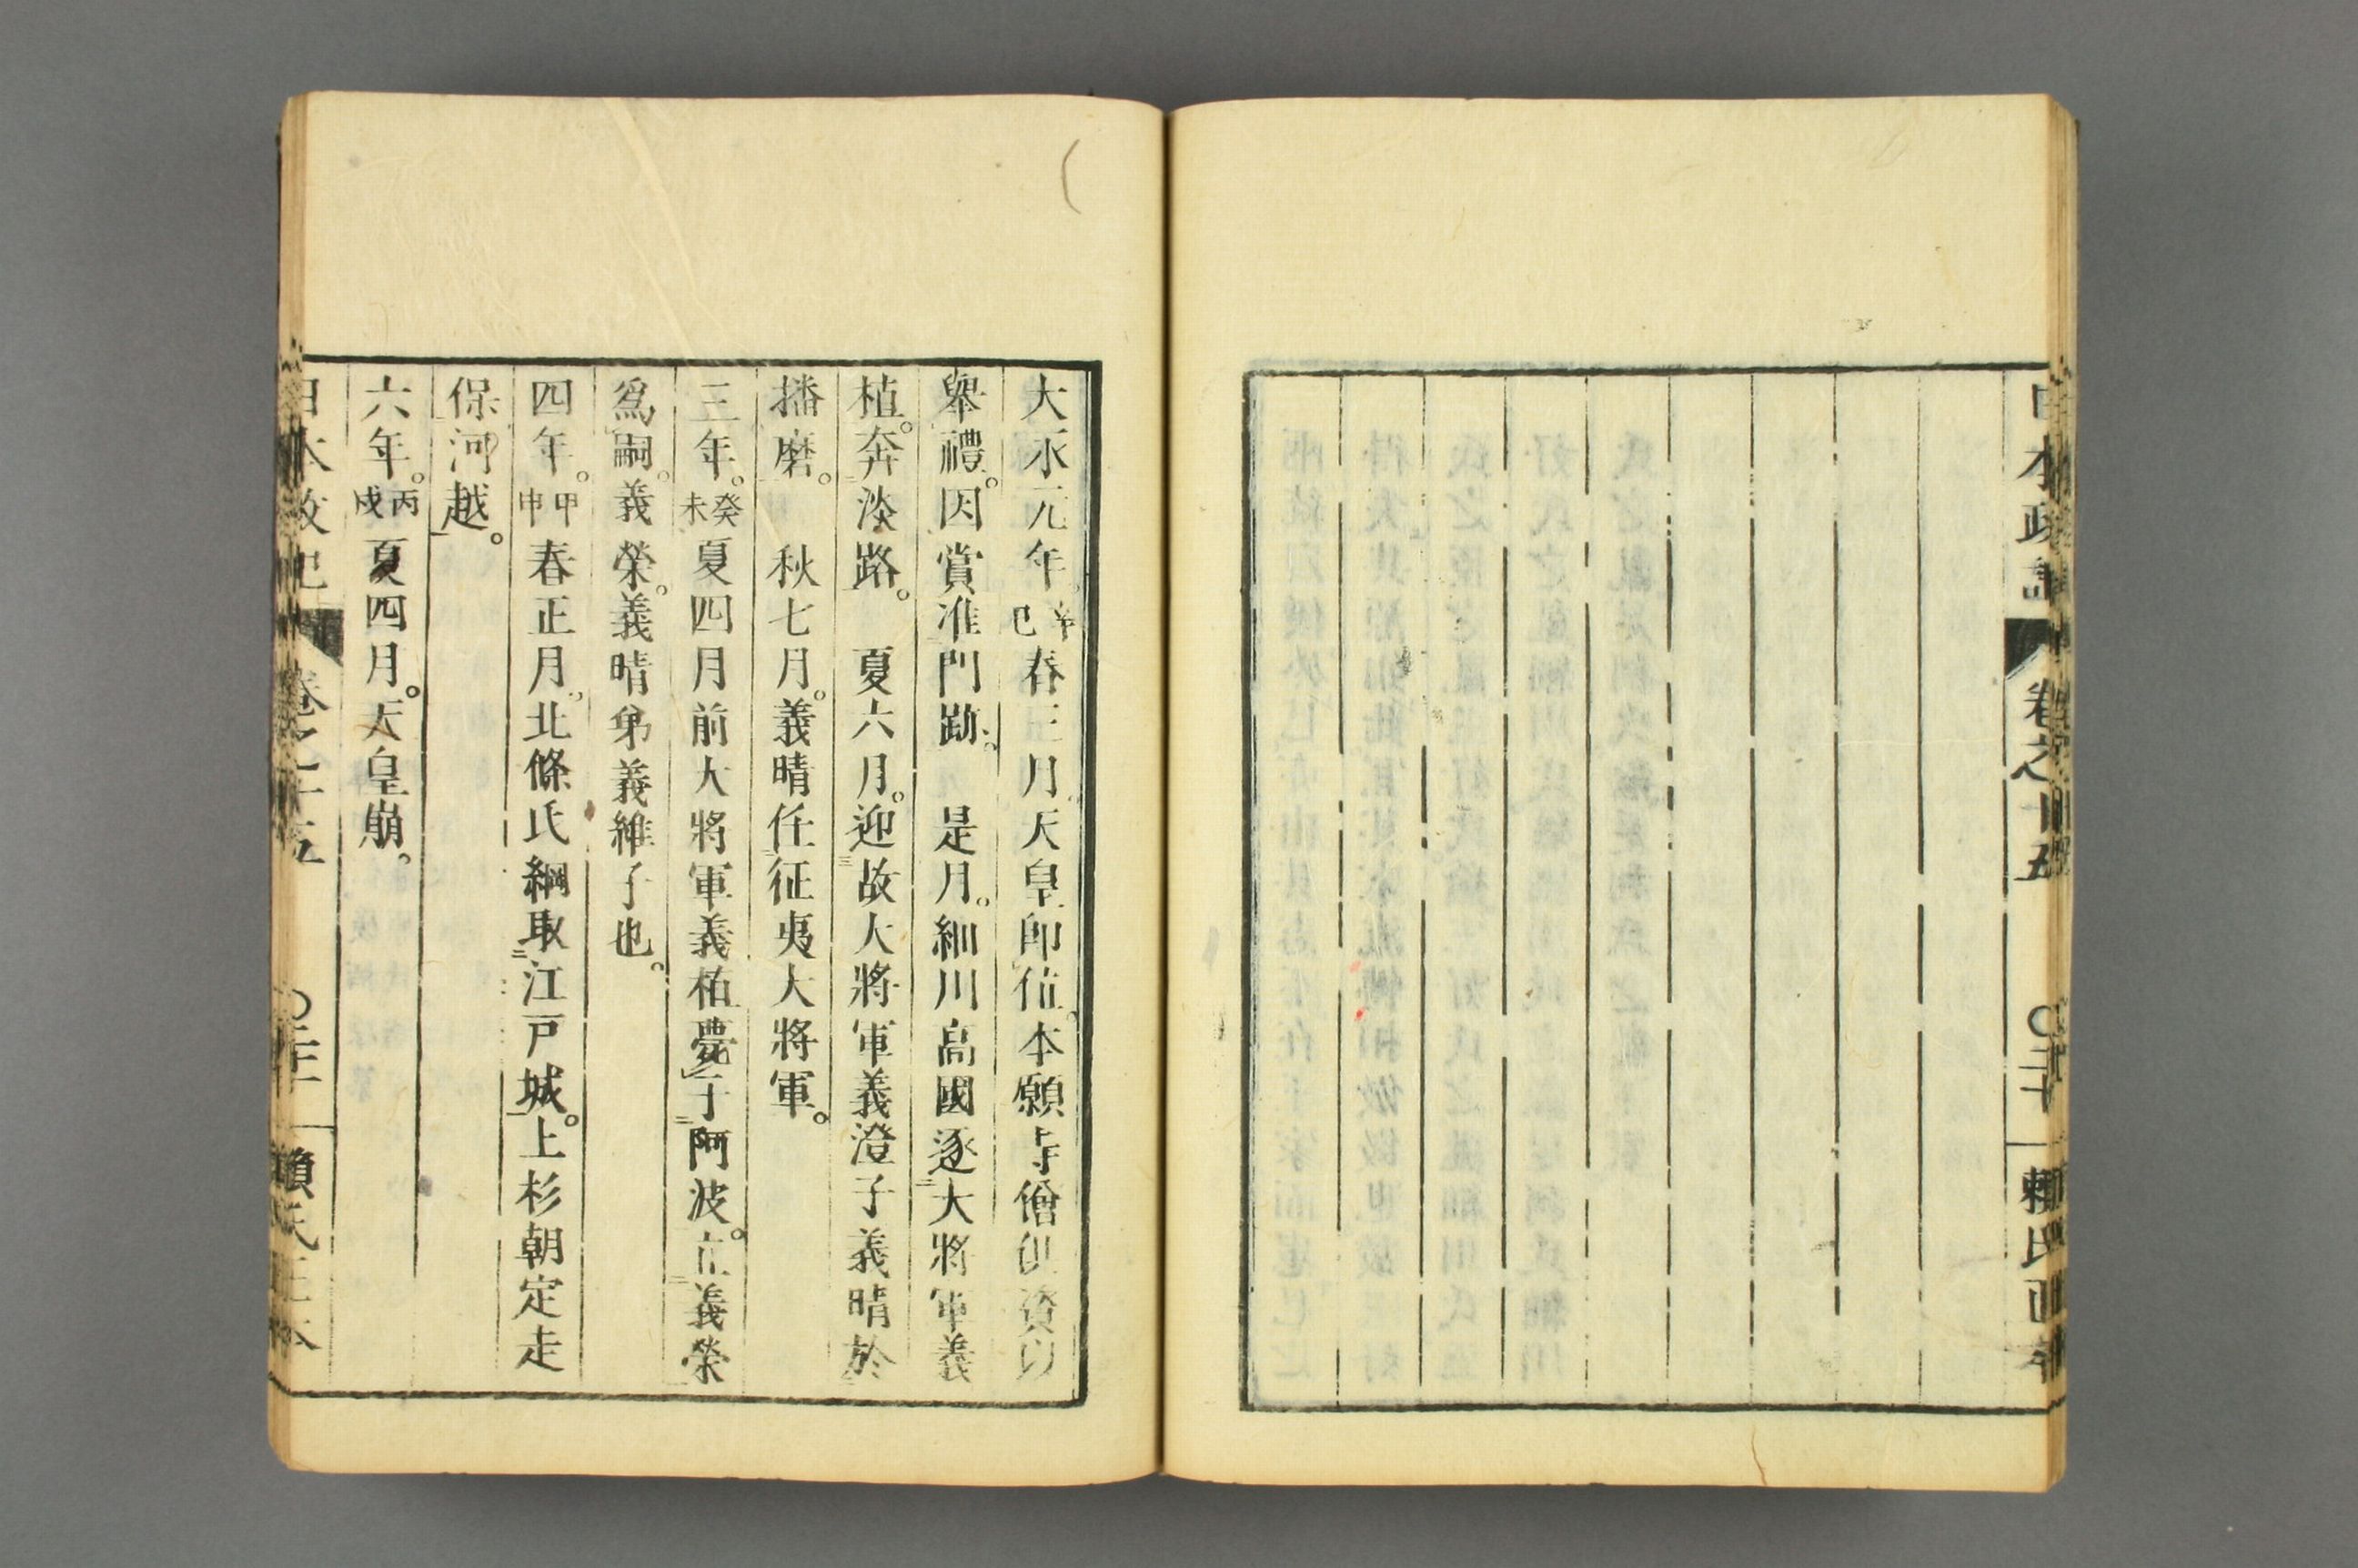 日本政記 卷之十五 〇三十 賴氏正本
大永元年。辛巳春三月。天皇卽位。本願寺僧供資以
舉禮。因賞准門跡。 是月。細川高國逐大將軍義
植。奔淡路。 夏六月。迎故大將軍義澄子義晴於
播磨。 秋七月。義晴任征夷大將軍。
三年。癸未夏四月前大將軍義植薨于阿波。立義榮
爲嗣。義榮。義晴弟義維子也。
四年。甲申春正月。北條氏綱取江戸城。上杉朝定走
保河越。
六年。丙戌夏四月。天皇崩。
日本政記 卷之十五 〇三十一 賴氏正本